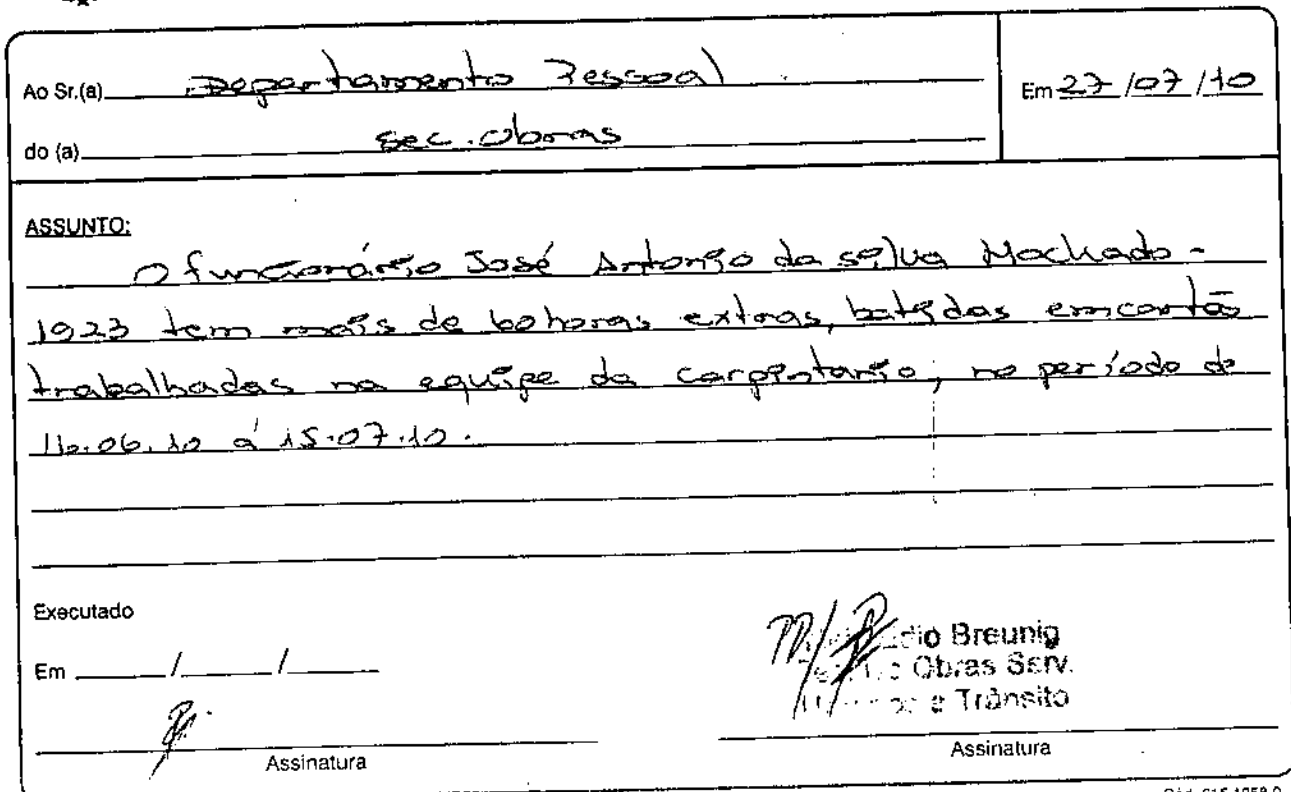 Ao Sr.(a) Departamento Pessoal
Em 27/07/10
do (a) Sec. Obras
ASSUNTO:
O funcionário José Antonio da Silva Machado -
1923 tem mais de 60 horas extras, batidas em cartão
trabalhadas na equipe da carpintaria, no período de
16.06.10 á 15.07.10.
Executado
Em / /
Assinatura
Breunig
Obras Serv.
e Trânsito
Assinatura